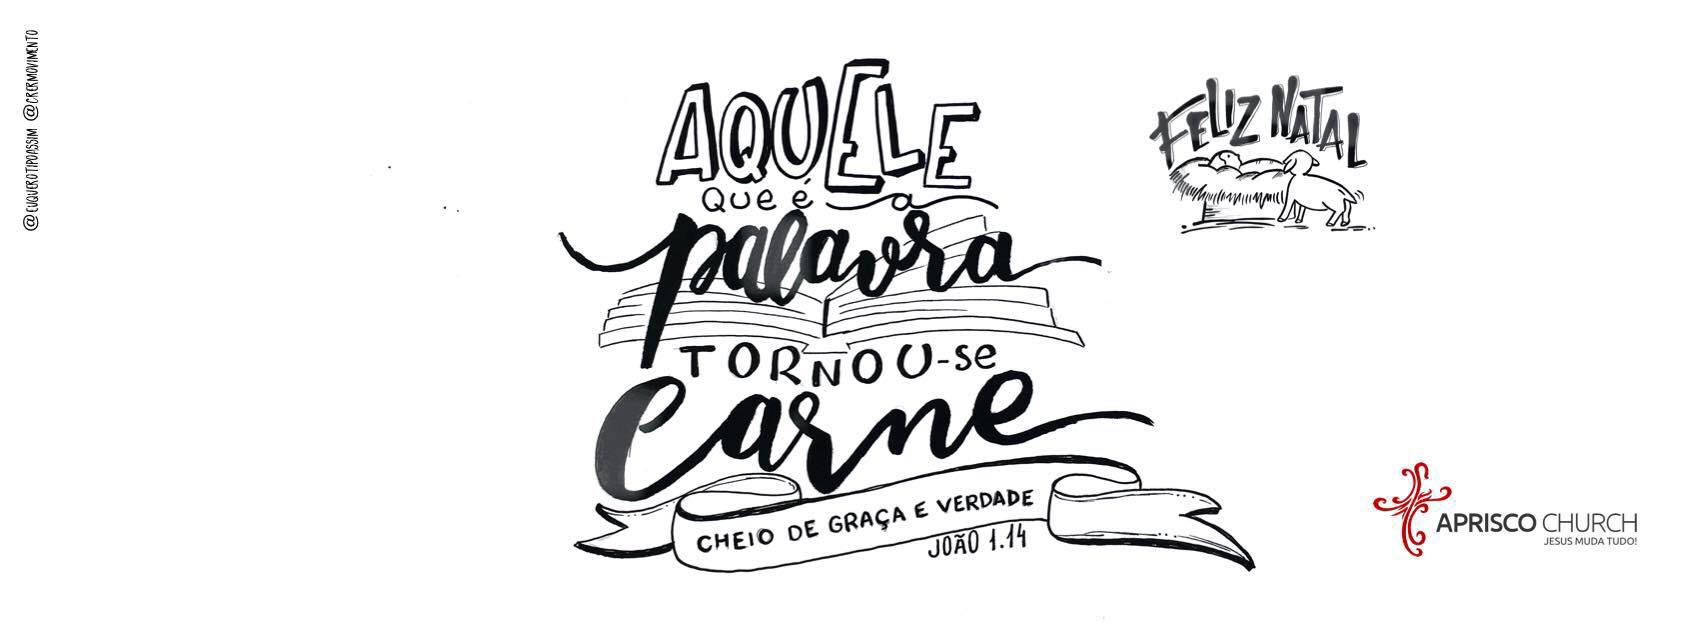 @EUQUEROTIPOASSIM @CRERMOVIMENTO
AQUELE
QUE É a
palavra
TORNOU-se
carne
CHEIO DE GRAÇA E VERDADE
JOÃO 1.14
FELIZ NATAL
APRISCO CHURCH
JESUS MUDA TUDO!